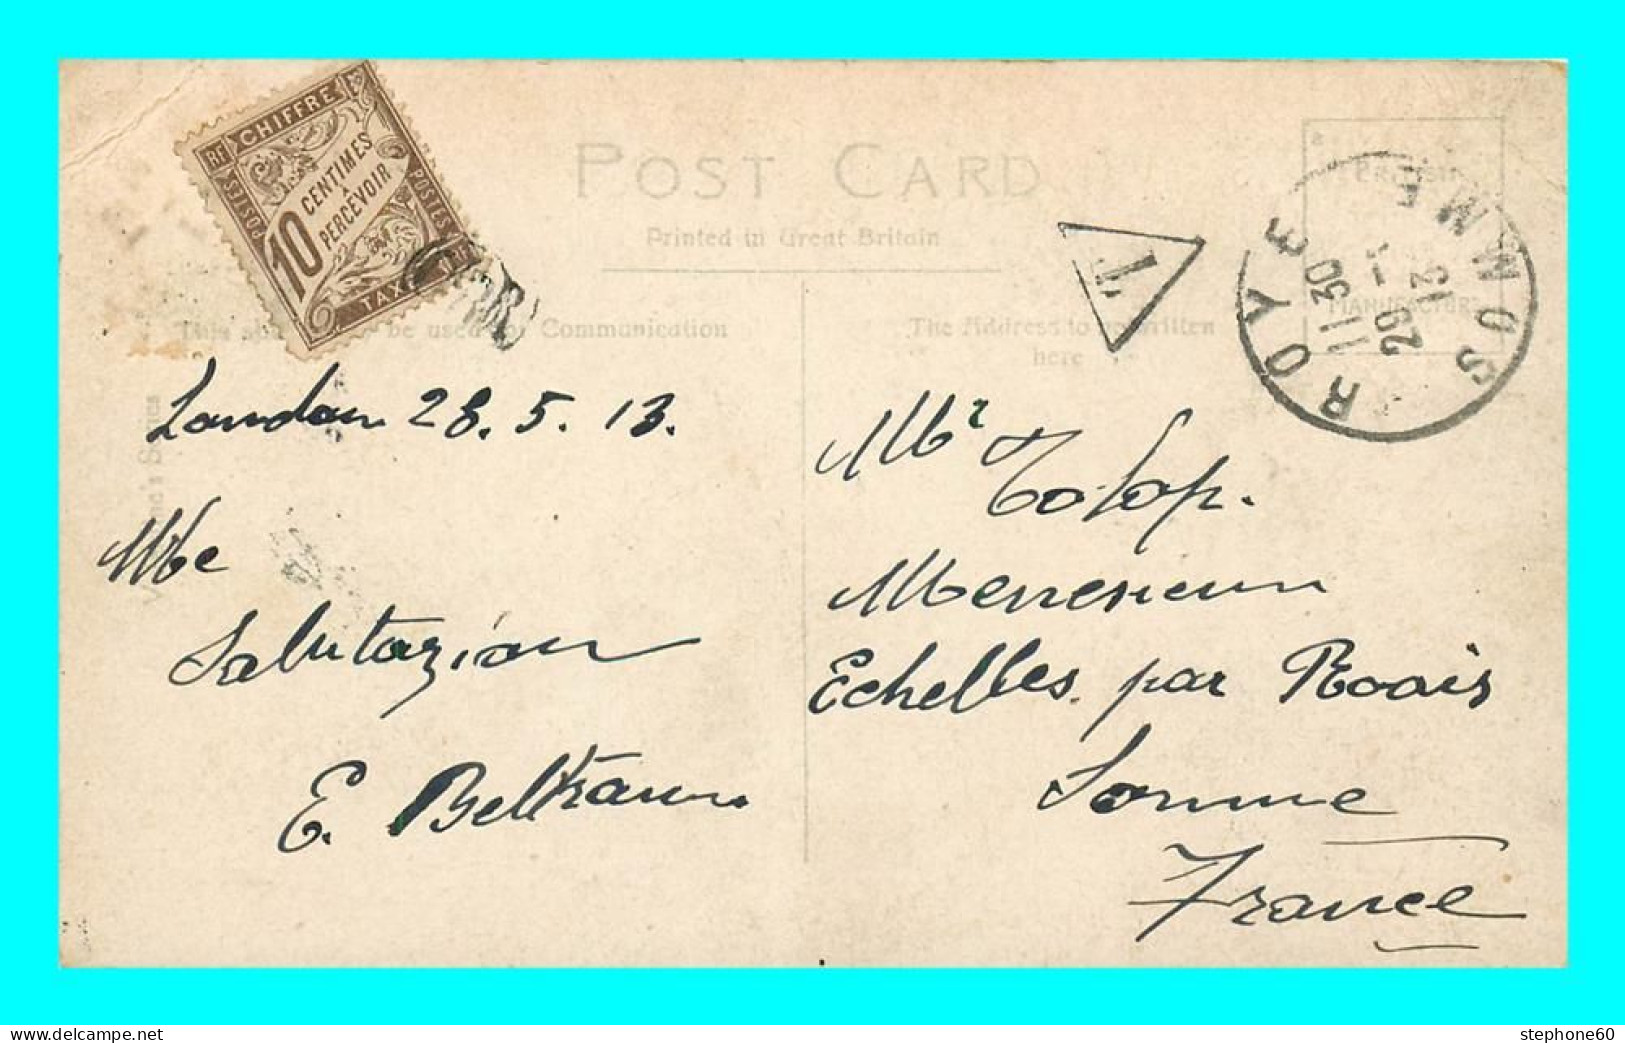 CHIFFRE
RF
POSTES
POSTES
10 CENTIMES
À
PERCEVOIR
TAXE
POST CARD
Printed in Great Britain
This be used for Communication
The Address to be written
here
T
ROYE SOMME
11 30
29 -5
13
British
MANUFACTURE
London 28.5.13.
Salutazion
E. Beltramo
Mr
Echelles par Roais
Somme
France
delcampe.net
stephone60